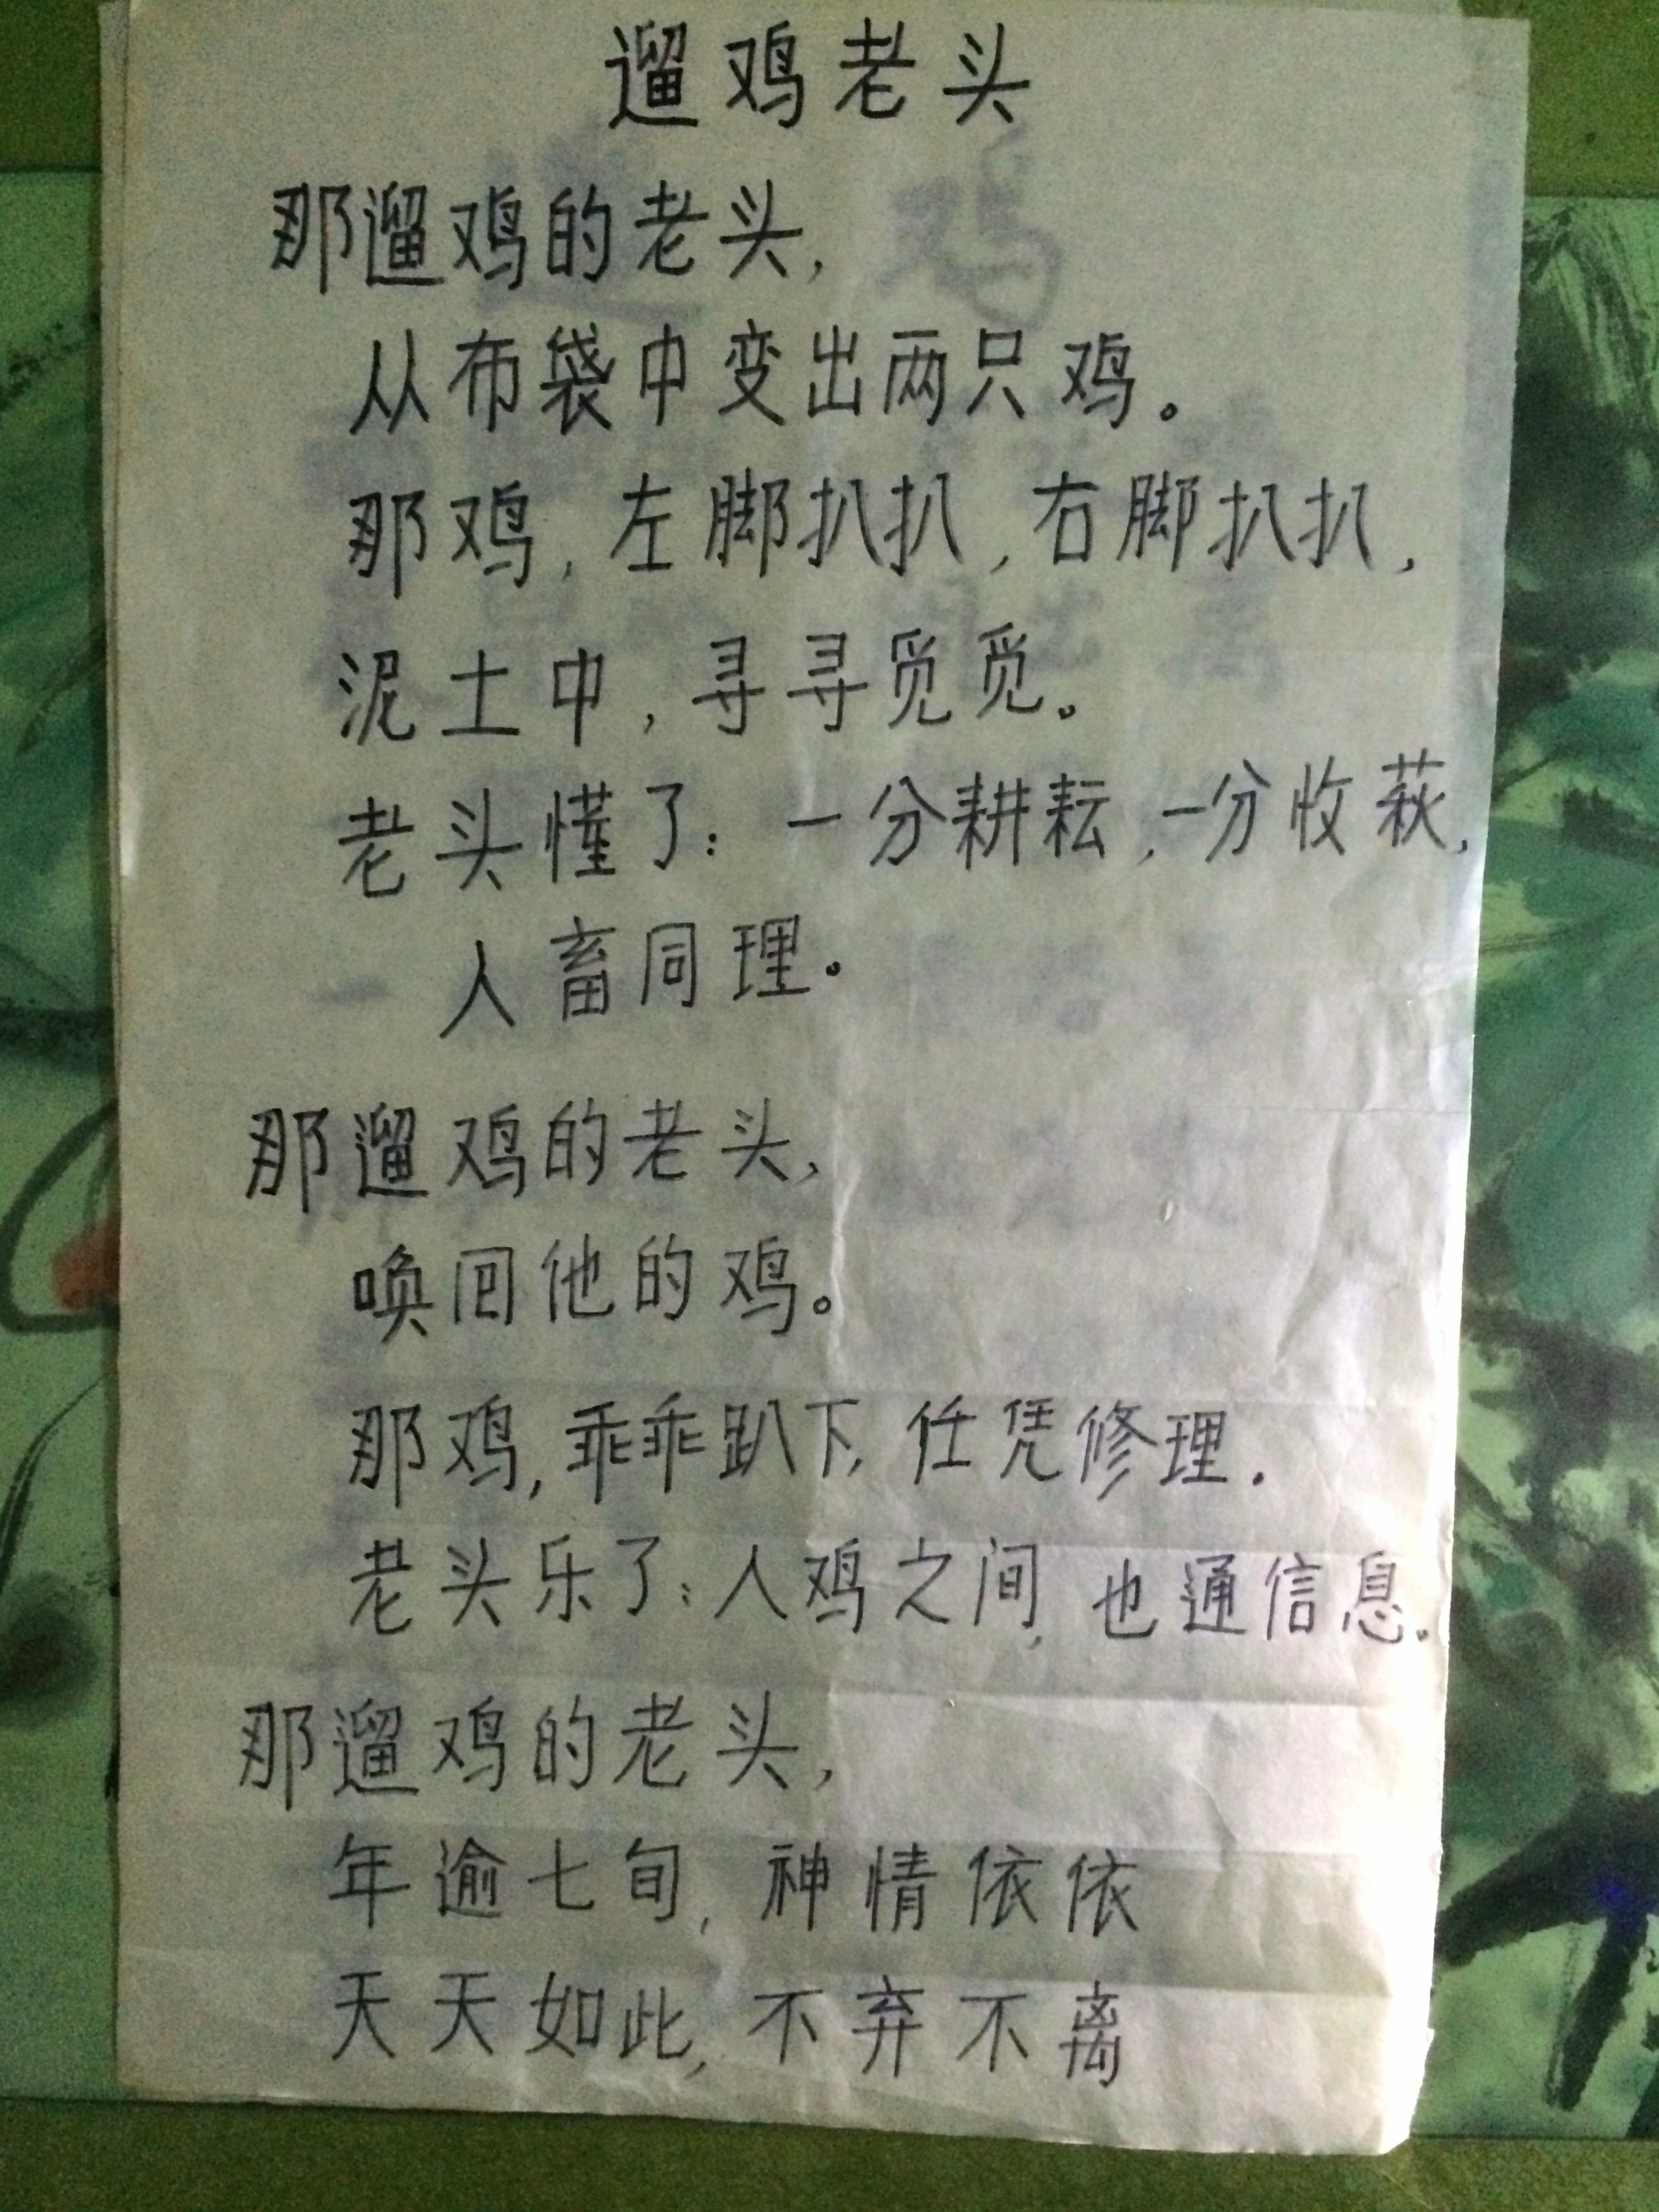 遛鸡老头
那遛鸡的老头,
从布袋中变出两只鸡。
那鸡,左脚扒扒,右脚扒扒,
泥土中,寻寻觅觅。
老头懂了:一分耕耘,一分收获,
人畜同理。
那遛鸡的老头,
唤回他的鸡。
那鸡,乖乖趴下,任凭修理.
老头乐了:人鸡之间,也通信息.
那遛鸡的老头,
年逾七旬,神情依依
天天如此,不弃不离